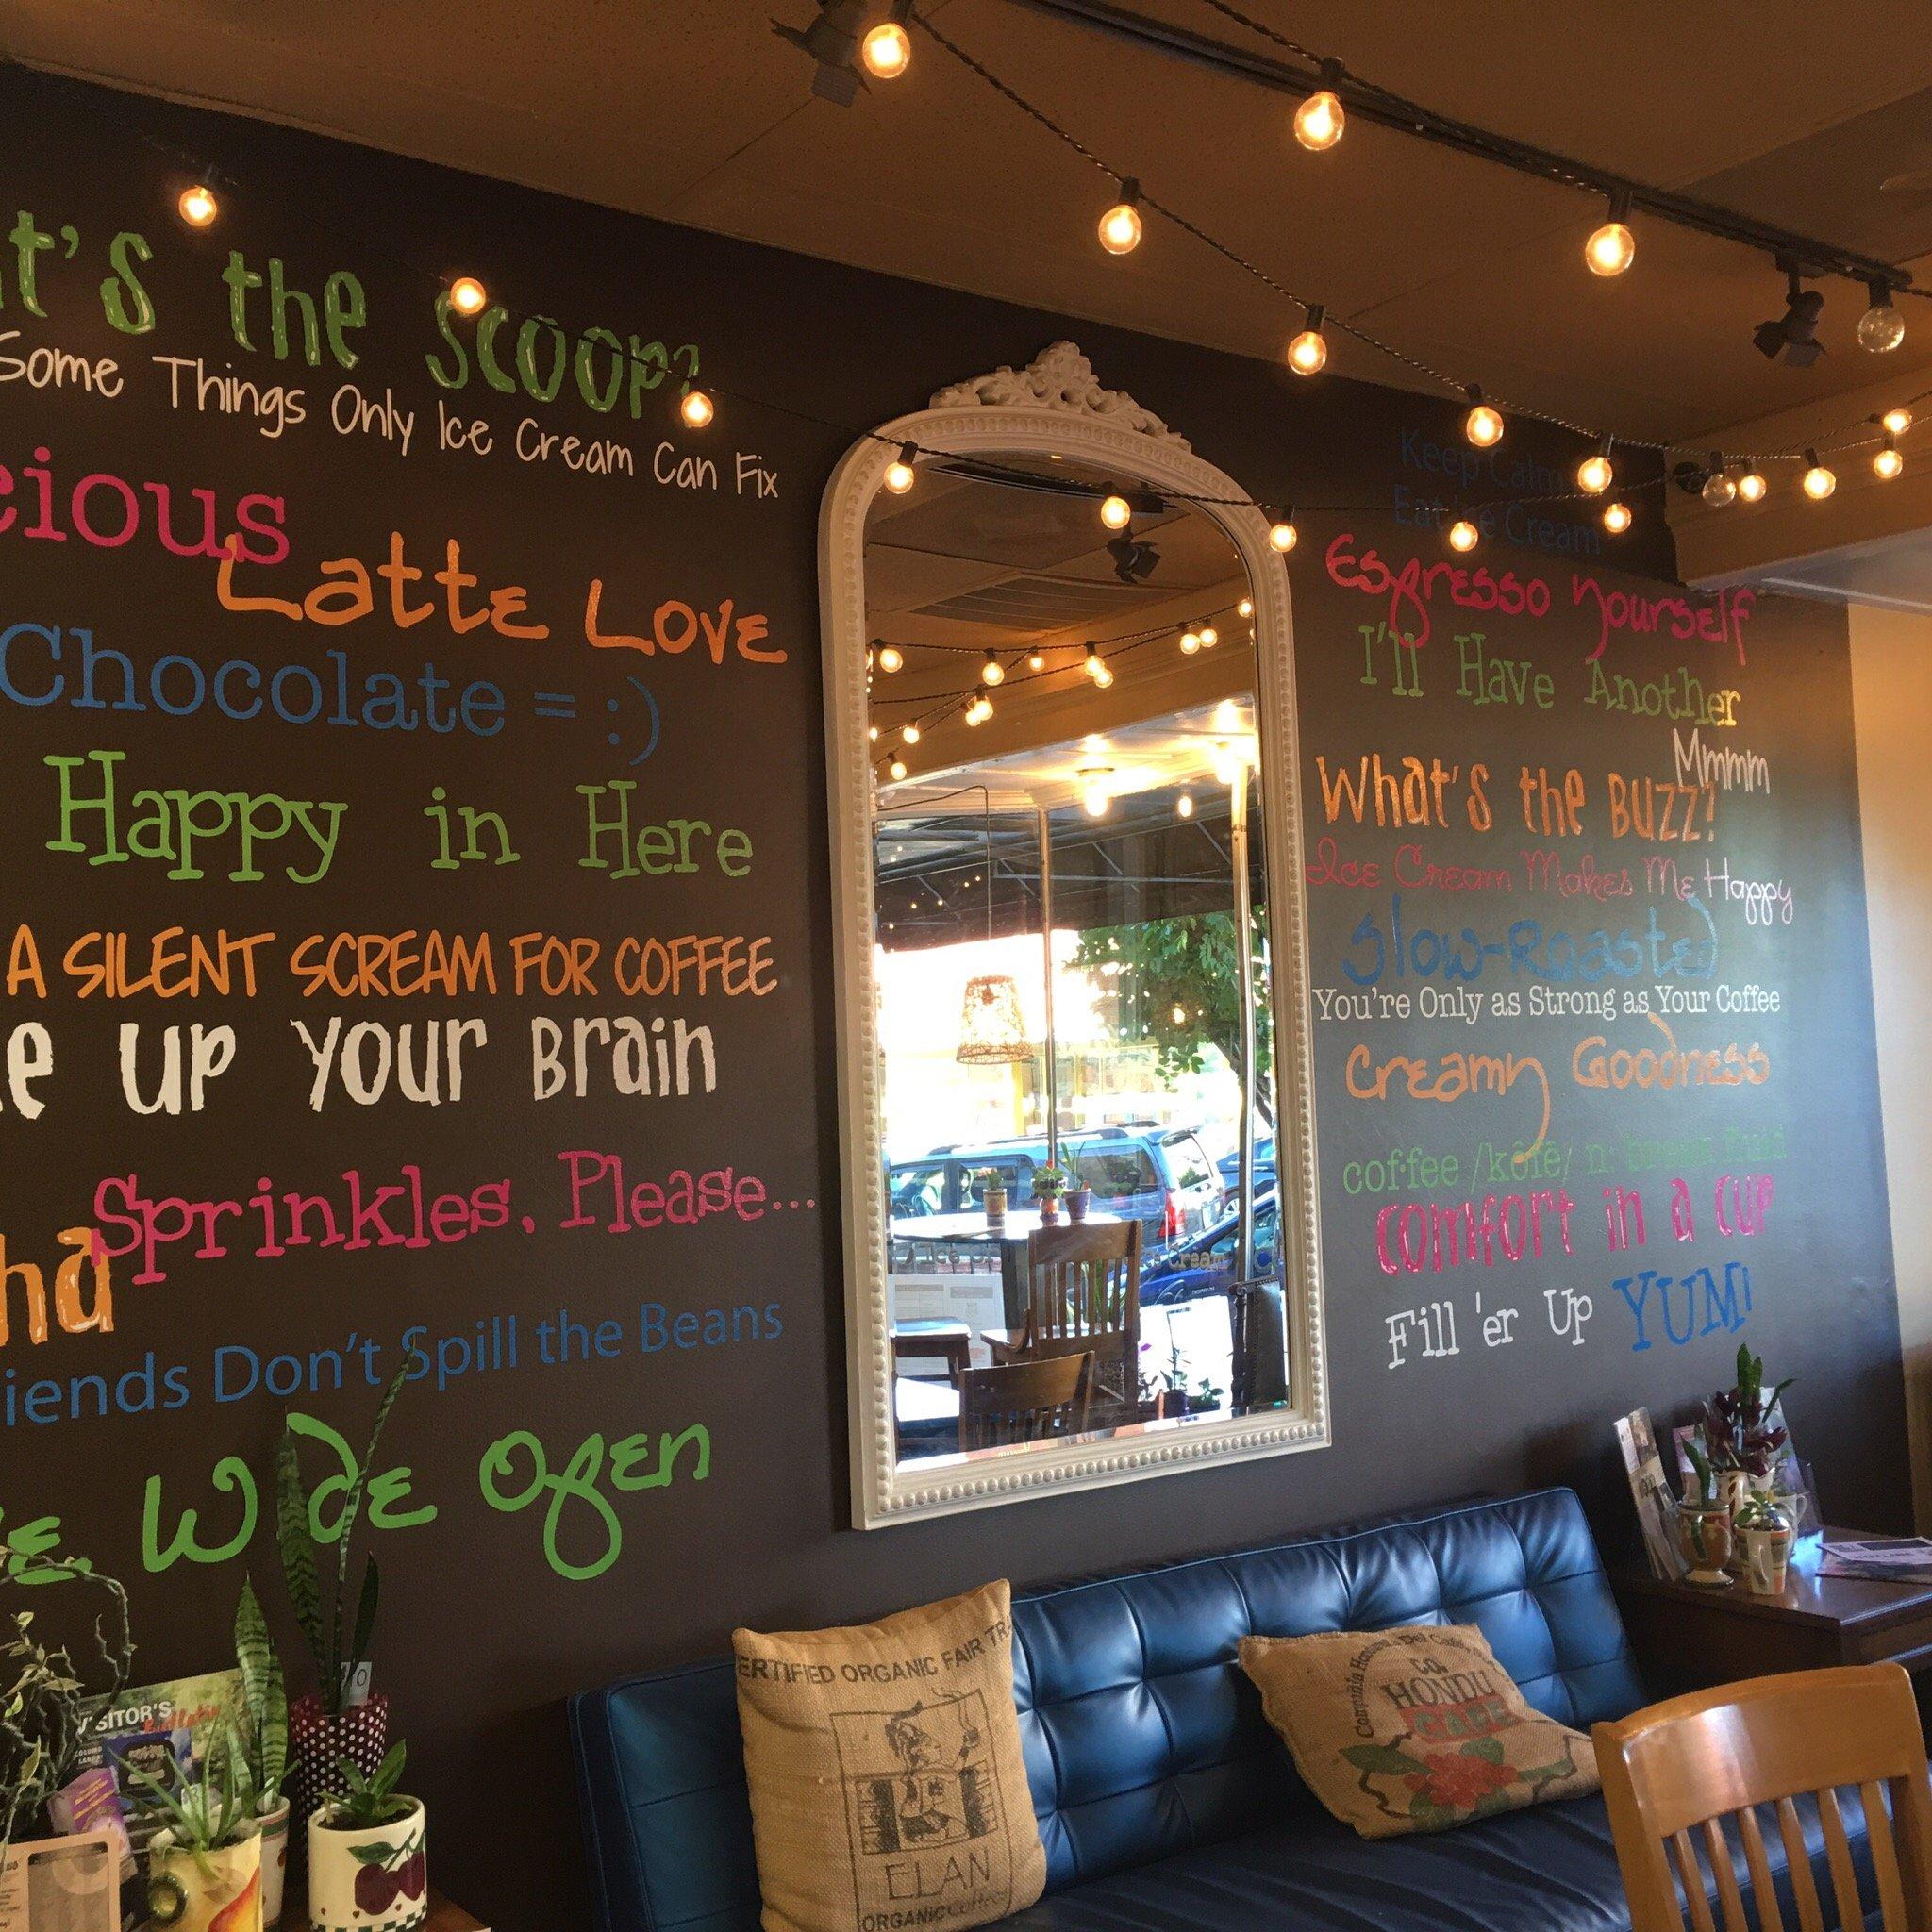 t's the scoop?
Some Things Only Ice Cream Can Fix
cious
Latte Love
Chocolate = :)
Happy in Here
A SILENT SCREAM FOR COFFEE
e up your Brain
Sprinkles, Please...
ha
iends Don't Spill the Beans
e Wide Open
Keep Calm
Eat Ice Cream
Espresso Yourself
I'll Have Another
Mmmm
What's the Buzz?
Ice Cream Makes Me Happy
Slow-Roasted
You're Only as Strong as Your Coffee
Creamy Goodness
coffee /kôfē/ n.
Comfort in a Cup
Fill 'er Up
YUM!
ERTIFIED ORGANIC FAIR TRA
ELAN
ORGANIC Coffees
HONDU
CAFE
VISITOR'S
Bulletin